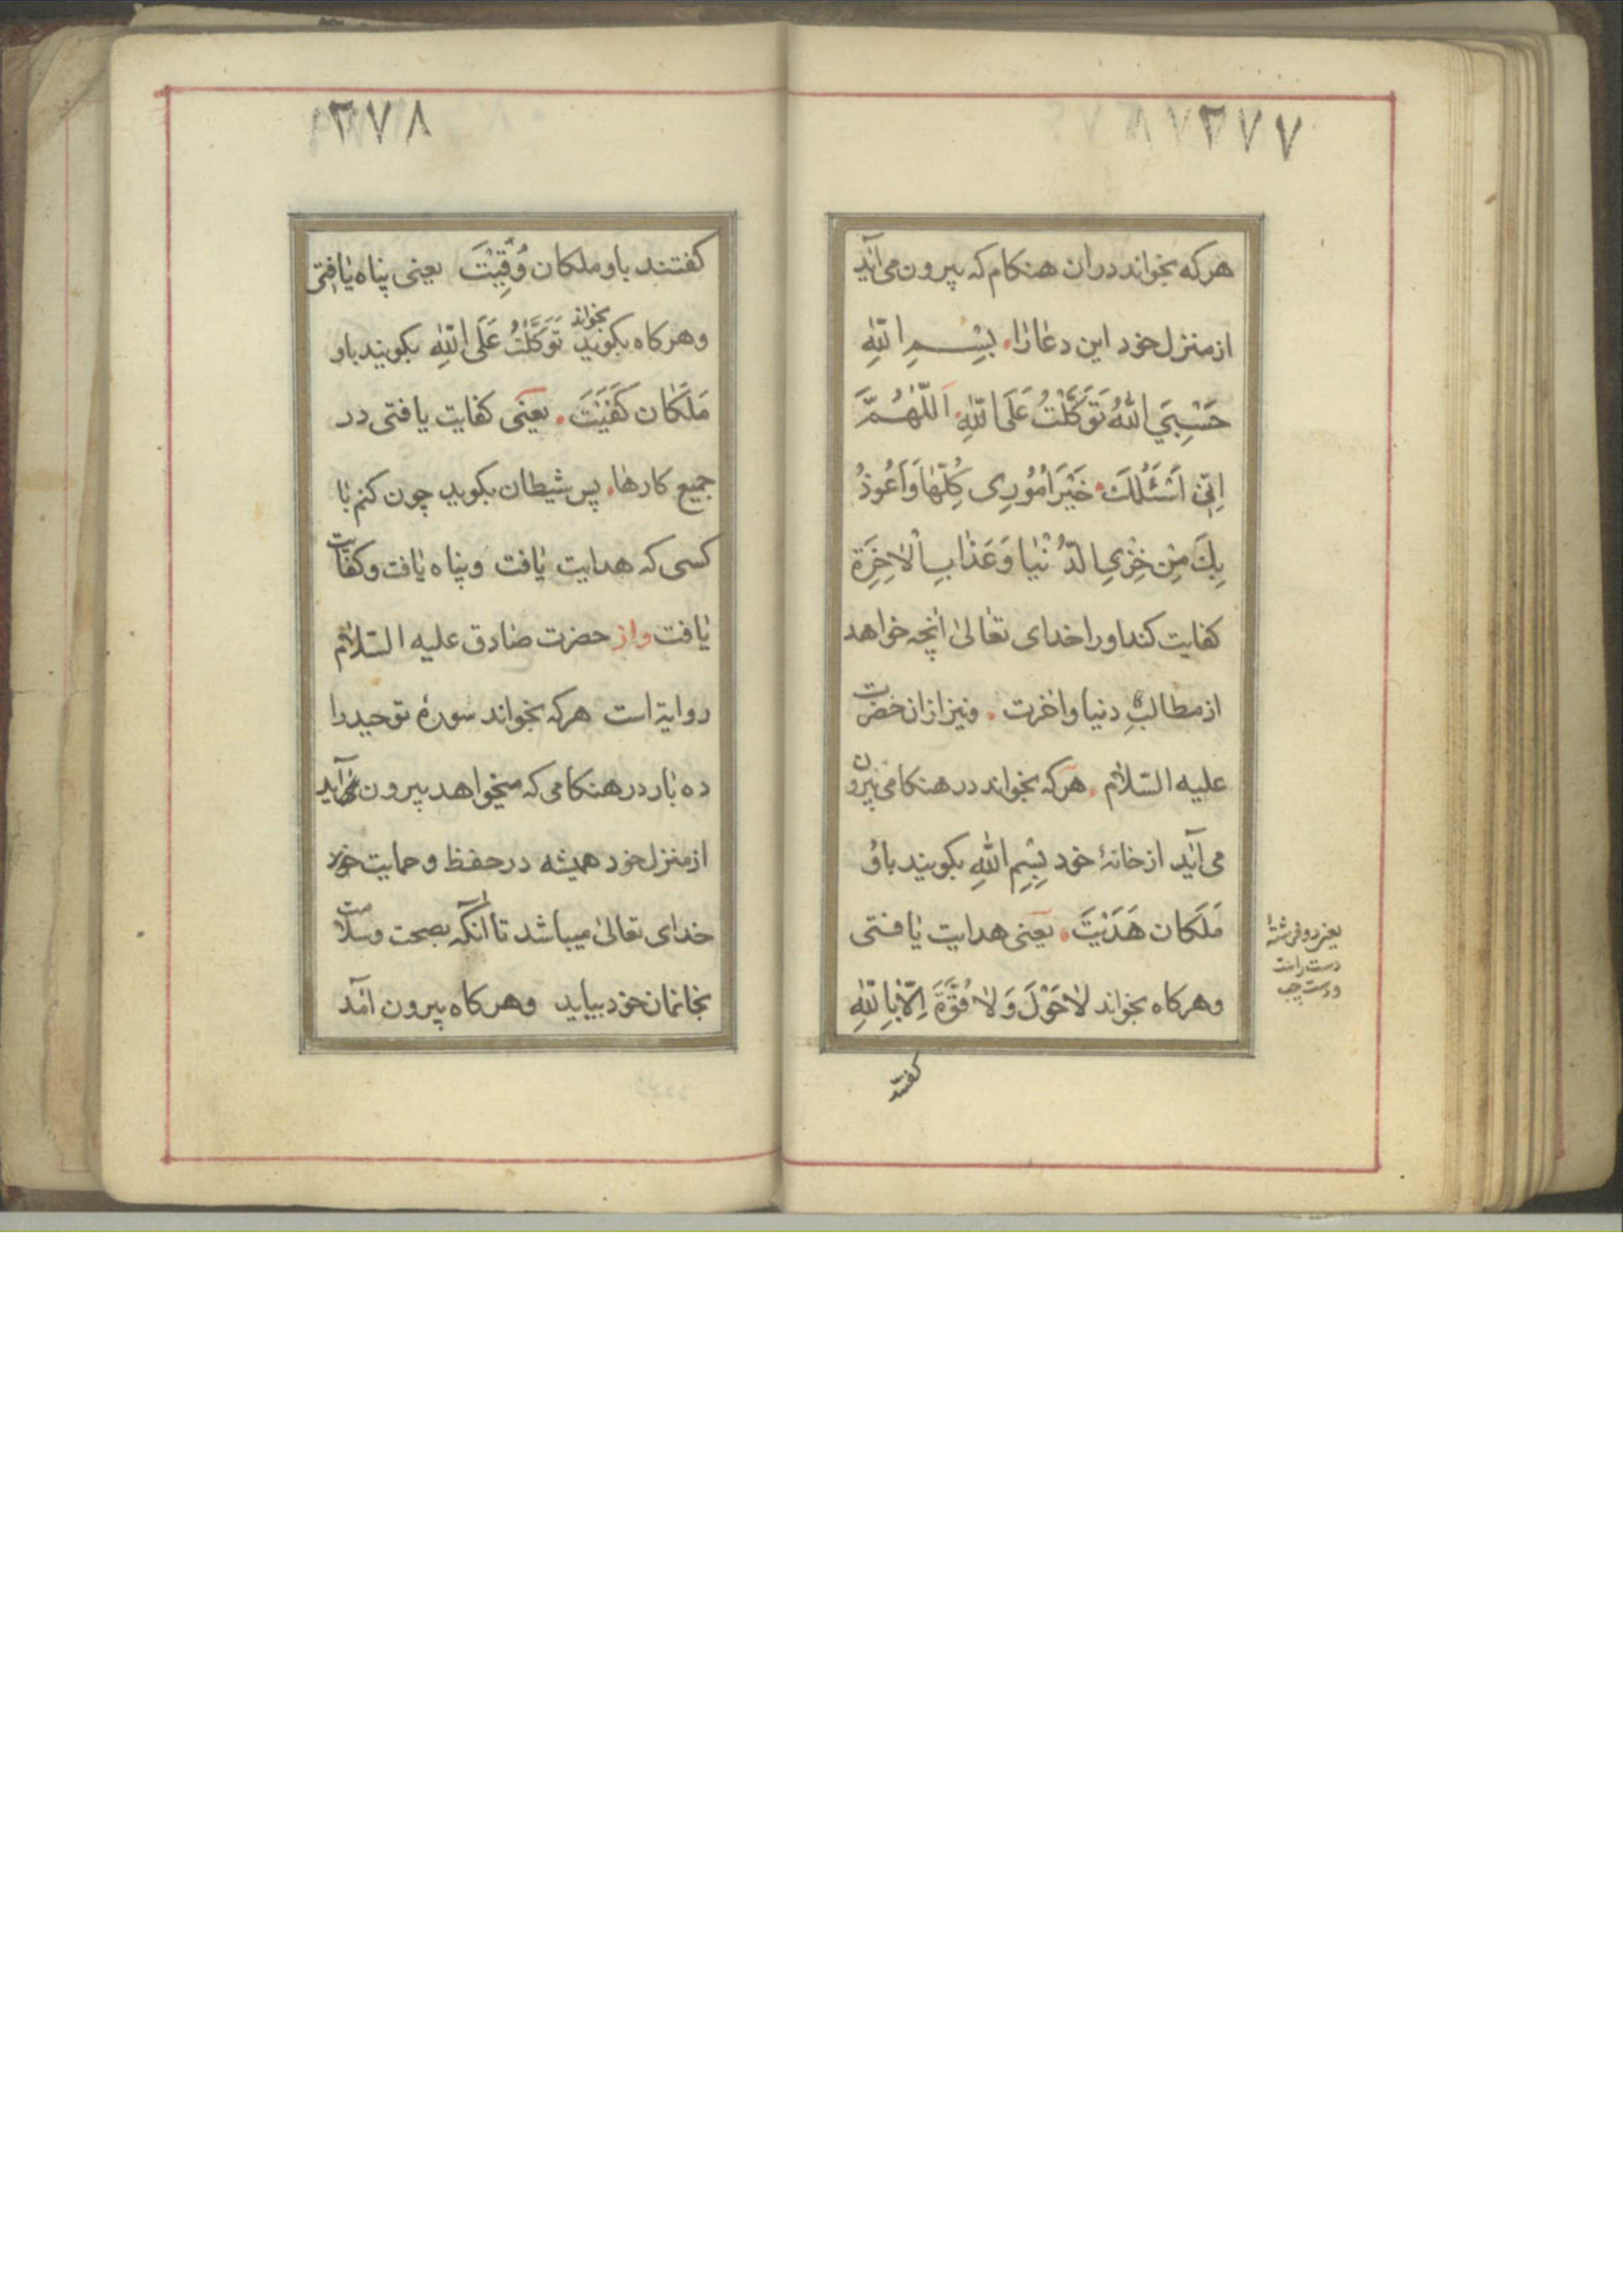 ۳۷۷
هرکه بخواند دران هنکام که بیرون می‌آید
از منزل خود این دعا را. بِسْمِ اللّٰهِ
حَسْبِيَ اللّٰهُ تَوَكَّلْتُ عَلَى اللّٰهِ. اَللّٰهُمَّ
اِنّٖي اَسْئَلُكَ خَيْرَ اُمُورِي كُلِّهَا وَاَعُوذُ
بِكَ مِنْ خِزْيِ الدُّنْيَا وَعَذَابِ الْاٰخِرَةِ
کفایت کند اورا خدای تعالیٰ آنچه خواهد
از مطالبِ دنیا و آخرت. و نیز ازان حضرت
علیه السّلام. هرکه بخواند در هنکامی بیرون
می‌آید از خانهٔ خود بِسْمِ اللّٰهِ بکویند باو
مَلَکان هَدَيْتَ. یعنی هدایت یافتی
وهرکاه بخواند لاٰحَوْلَ وَلاٰ قُوَّةَ اِلّاٰ بِاللّٰهِ
یعنی دو فرشتهٔ
دست راست
و دست چپ
کفتند
۳۷۸
کفتند باو ملکان وُقِيْتَ یعنی پناه یافتی
وهرکاه بکوید بخواند تَوَكَّلْتُ عَلَى اللّٰهِ بکویند باو
مَلَکان كَفَيْتَ. یعنی کفایت یافتی در
جمیع کارها. پس شیطان بکوید چون کنم با
کسی که هدایت یافت و پناه یافت و کفایت
یافت واز حضرت صادق علیه السّلام
روایة است هرکه بخواند سورهٔ توحید را
ده بار در هنکامی که میخواهد بیرون می‌آید
از منزل خود همیشه در حفظ و حمایت خود
خدای تعالیٰ میباشد تا آنکه بصحت وسلامت
بخانمان خود بیاید وهرکاه بیرون آمد